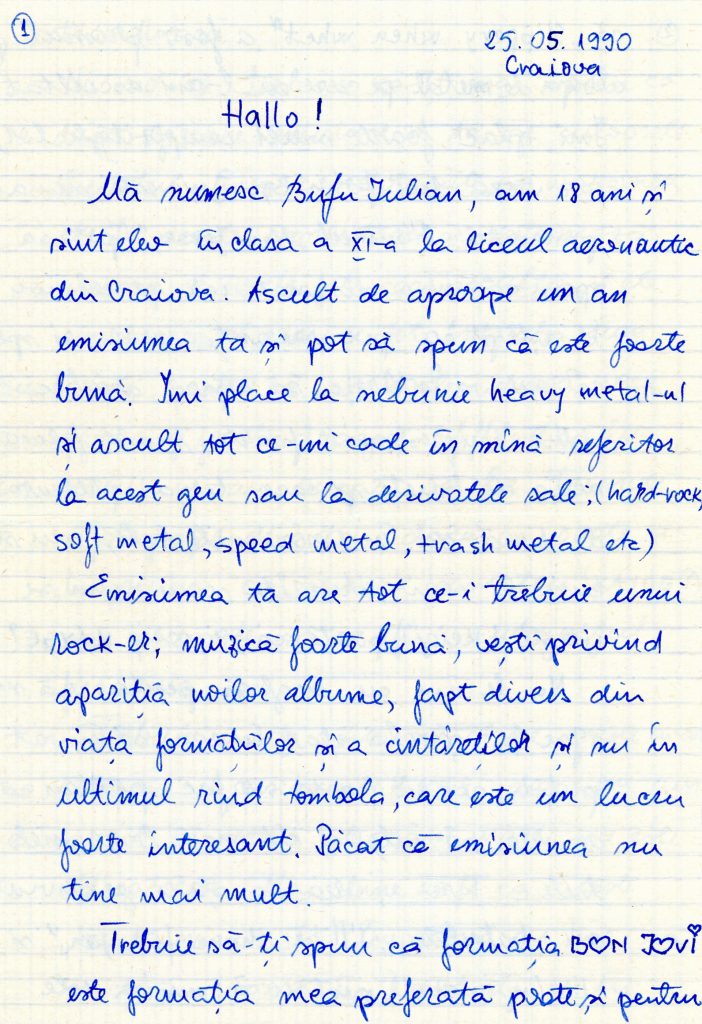 1
25.05.1990
Craiova
Hallo!
Mă numesc Bufu Iulian, am 18 ani și
sint elev în clasa a XI-a la liceul aeronautic
din Craiova. Ascult de aproape un an
emisiunea ta și pot să spun că este foarte
bună. Imi place la nebunie heavy metal-ul
și ascult tot ce-mi cade în mină referitor
la acest gen sau la derivatele sale; (hard-rock,
soft metal, speed metal, trash metal etc)
Emisiunea ta are tot ce-i trebuie unui
rock-er; muzică foarte bună, vești privind
apariția noilor albume, fapt divers din
viața formațiilor și a cintăreților și nu în
ultimul rînd tombola, care este un lucru
foarte interesant. Păcat că emisiunea nu
tine mai mult.
Trebuie să-ți spun că formația BON JOVI
este formația mea preferată poate și pentru